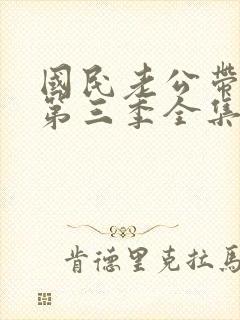 國民老公帶
第三季全集
肯德里克拉馬